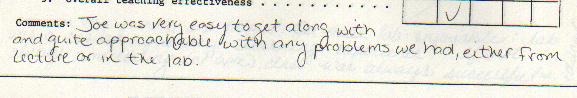 9. Overall teaching effectiveness . . . . . . . . . . . .
Comments: Joe was very easy to get along with
and quite approachable with any problems we had, either from
lecture or in the lab.